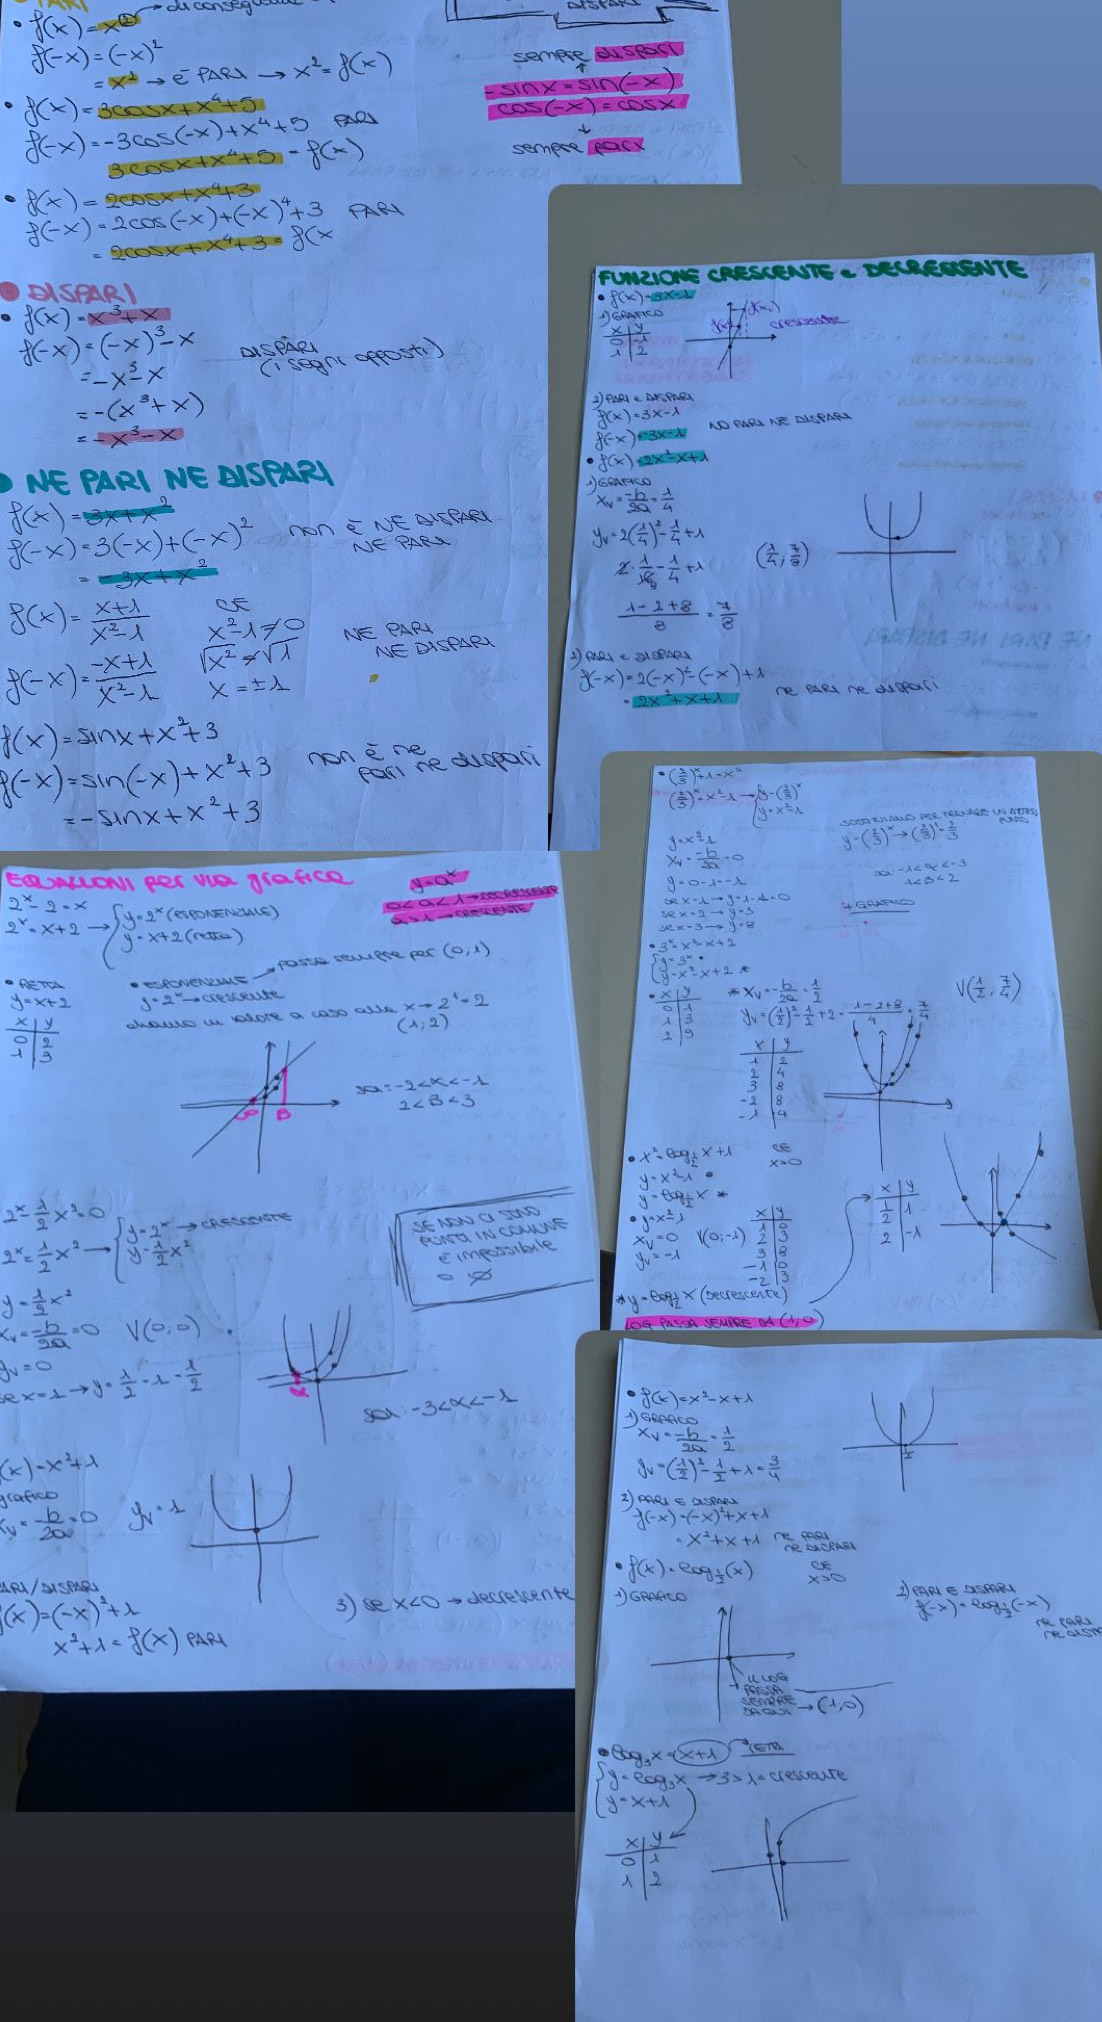 PARI
• f(x)=x²
f(-x)=(-x)²
=x² → è PARI → x²=f(x)
• f(x)=3cosx+x⁴+5
f(-x)=-3cos(-x)+x⁴+5 PARI
3cosx+x⁴+5=f(x)
• f(x)=2cosx+x⁴+3
f(-x)=2cos(-x)+(-x)⁴+3 PARI
=2cosx+x⁴+3=f(x
DISPARI
sempre dispari
-sinx=sin(-x)
cos(-x)=cosx
sempre pari
• DISPARI
• f(x)=x³+x
f(-x)=(-x)³-x
=-x³-x
=-(x³+x)
=-x³-x
DISPARI
(i segni opposti)
• NE PARI NE DISPARI
f(x)=3x+x²
f(-x)=3(-x)+(-x)²
=-3x+x²
non è NE DISPARI
NE PARI
f(x)=x+1/x²-1
f(-x)=-x+1/x²-1
CE
x²-1≠0
√x²≠√1
x=±1
NE PARI
NE DISPARI
f(x)=sinx+x²+3
f(-x)=sin(-x)+x²+3
=-sinx+x²+3
non è ne
pari ne dispari
FUNZIONE CRESCENTE e DECRESCENTE
• f(x)=3x-1
1) GRAFICO
x y
0 -1
1 2
crescente
2) PARI e DISPARI
f(x)=3x-1
f(-x)=-3x-1
NO PARI NE DISPARI
• f(x)=2x²-x+1
1) GRAFICO
Xv=-b/2a=1/4
yv=2(1/4)²-1/4+1
2·1/16-1/4+1
1-2+8/8=7/8
(1/4;7/8)
2) PARI e DISPARI
f(-x)=2(-x)²-(-x)+1
=2x²+x+1
ne PARI ne dispari
EQUAZIONI per via grafica
y=aˣ
0<a<1→DECRESCENTE
a>1→CRESCENTE
2ˣ-2=x
2ˣ=x+2
y=2ˣ (ESPONENZIALE)
y=x+2 (retta)
• RETTA
y=x+2
x y
0 2
1 3
• ESPONENZIALE → passa sempre per (0,1)
y=2ˣ→crescente
diamo un valore a caso alla x→2¹=2
(1;2)
α B
sol: -2<α<-1
2<B<3
2ˣ-1/2x²=0
2ˣ=1/2x²
y=2ˣ→CRESCENTE
y=1/2x²
SE NON CI SONO
PUNTI IN COMUNE
È impossibile
o ∅
y=1/2x²
Xv=-b/2a=0 V(0;0)
yv=0
se x=1→y=1/2·1=1/2
α
sol: -3<α<-1
(x)=x²+1
grafico
Xv=-b/2a=0 yv=1
PARI/DISPARI
f(x)=(-x)²+1
x²+1=f(x) PARI
3) se x<0→decrescente
• (2/3)ˣ+1=x²
(2/3)ˣ=x²-1
y=(2/3)ˣ
y=x²-1
y=x²-1
Xv=-b/2a=0
y=0-1=-1
se x=1→y=1-1=0
se x=2→y=3
se x=3→y=8
SOSTITUIAMO PER TROVARE UN ALTRO
PUNTO
y=(2/3)ˣ→(2/3)¹=2/3
1<B<2
+GRAFICO
• 3ˣ=x²-x+2
y=3ˣ •
y=x²-x+2 *
• x y
0 1
1 3
2 9
*Xv=-b/2a=1/2
yv=(1/2)²-1/2+2=1-2+8/4=7/4
V(1/2;7/4)
x y
1 2
2 4
3 8
-2 8
-1 4
• x²=log½x+1
CE
x>0
y=x²-1 •
y=log½x *
• y=x²-1
Xv=0
yv=-1
V(0;-1)
x y
1 0
2 3
3 8
-1 0
-2 3
x y
1/2 1
2 -1
*y=log½x (Decrescente)
LOG PASSA SEMPRE DA (1,0)
• f(x)=x²-x+1
1) GRAFICO
Xv=-b/2a=1/2
yv=(1/2)²-1/2+1=3/4
2) PARI E DISPARI
f(-x)=(-x)²+x+1
=x²+x+1
ne PARI
ne DISPARI
• f(x)=log½(x)
CE
x>0
1) GRAFICO
IL LOG
PASSA
SEMPRE
DA QUI → (1,0)
2) PARI E DISPARI
f(-x)=log½(-x)
ne PARI
• log₃x=x+1 → RETTA
y=log₃x→3>1=crescente
y=x+1
x y
0 1
1 2